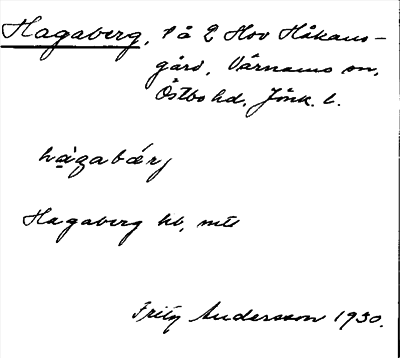 Hagaberg, 1 å 2 Hov Håkans-
gård, Värnamo sn,
Östbo hd, Jönk. l.
hàgabærj
Hagaberg hb, mtl
Fritz Andersson 1930.